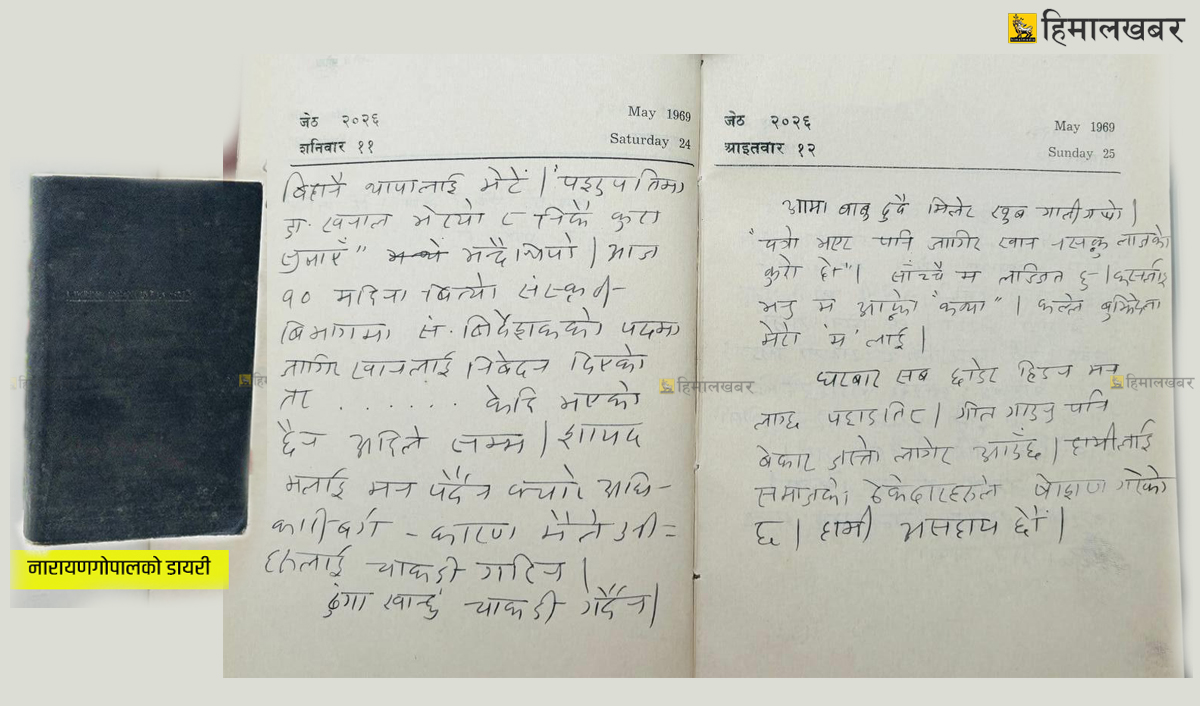 हिमालखबर
जेठ २०२६ May 1969
शनिबार ११ Saturday 24
बिहानै थापालाई भेटें। "पशुपतिमा
डा. खनाल भेट्यो र निकै कुरा
सुनाएँ" भन्दै थियो। आज
१० महिना बित्यो संस्कृति-
बिभागमा सं. निर्देशकको पदमा
जागिर खानलाई निबेदन दिएको
तर . . . . . . . केहि भएको
छैन अहिले सम्म। शायद
मलाई मन पर्दैन क्यारे अधि-
कारीबर्ग - कारण मैले उनी-
हरुलाई चाकडी गरिन।
ढुंगा खान्छु चाकडी गर्दैन।
जेठ २०२६ May 1969
आइतवार १२ Sunday 25
आमा बाबु दुवै मिलेर खुब गाली गर्‍यो।
"यत्रो भएर पनि जागिर खान नसक्नु लाजको
कुरो हो"। साँच्चै म लाञ्छित छु। कसलाई
भनु म आफ्नो "कथा"। कल्ले बुझिदेला
मेरो 'म' लाई।
घरबार सब छोडेर हिडन मन
लाग्छ पहाडतिर। गीत गाउनु पनि
बेकार जस्तो लागेर आउँछ। हामीलाई
समाजको ठेकेदारहरुले शोषण गरेको
छ। हामी असहाय छौं।
नारायणगोपालको डायरी
हिमालखबर
हिमालखबर